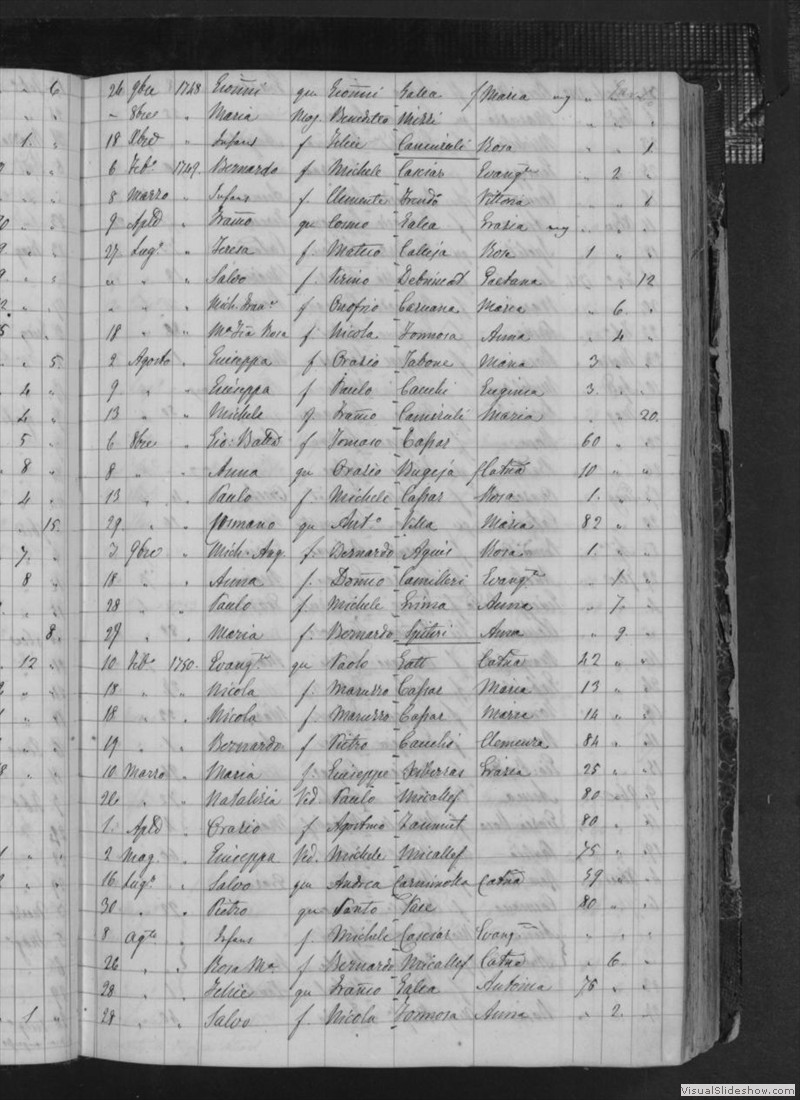 6 24 9bre 1748 Gionni qu Gionni Galea f Maria ag "
" 8bre " Maria Mog. Benedetto Mizzi " " "
1. 18 Xbre " Infans f Felice Camenzuli Rosa " " 1
6 Feb. 1749. Bernardo f Michele Casciar Evang. " 2 "
8 Marzo " Infans f. Clemente Vittoria " " 1
9 Aple " Franco qu Cosmo Galea Grazia ag " "
27 Lug. " Teresa f. Matteo Calleja Rosa 1 " "
" " " Salvo f Gaetana " " 12
" " " Mich. f Onofrio Caruana Maria " 6 "
18 " " Ma Rosa f Nicola Formosa Anna " 4 "
5. 2 Agosto " Giuseppa f Orazio Tabone Maria 3 " "
4 9 " " Giuseppa f Paulo Cauchi Eugenia 3 " "
4 13 " " Michele f Franco Camenzuli Maria " " 20.
5 6 8bre " Gio: Batta f Tomaso Caspar 60 " "
8 8 " " Anna qu Orazio Bugeja f Catna 10 " "
4 13 " " Paulo f. Michele Caspar Rosa 1. " "
15. 29 " " Germano qu Ant. Vella Maria 82 " "
7. 3 9bre " Mich. Ang. f. Bernardo Agius Rosa 1. " "
8 18 " " Anna f. Domco Camilleri Evang. " 1 "
28 " " Paulo f Michele Grima Anna " 7. "
8. 29 " " Maria f. Bernardo Spiteri Anna " 9 "
12 10 Feb. 1750. Evang. qu Paolo Gatt Catna 42 " "
18 " " Nicola f. Maruzzo Caspar Maria 13 " "
18 " " Nicola f Maruzzo Caspar Maria 14 " "
19 " " Bernardo f Pietro Cauchi Clemenza 84 " "
10 Marzo " Maria f. Giuseppe Grazia 25 " "
26 " " Natalizia Ved Paulo Micallef 80 " "
1. Aple " Orazio f Agostino Zammit 80 " "
2 Mag. " Giuseppa Ved. Michele Micallef 75 " "
16 Lug. " Salvo qu Andrea Catna 59 " "
30 " " Pietro qu Santo 80 " "
8 Agto " Infans f. Michele Casciar Evang. " " "
26 " " Rosa Ma f Bernardo Micallef Catna " 6 "
28 " " Felice qu Franco Galea Antonia 75 " "
1 28 " " Salvo f. Nicola Formosa Anna " 2. "
VisualSlideshow.com